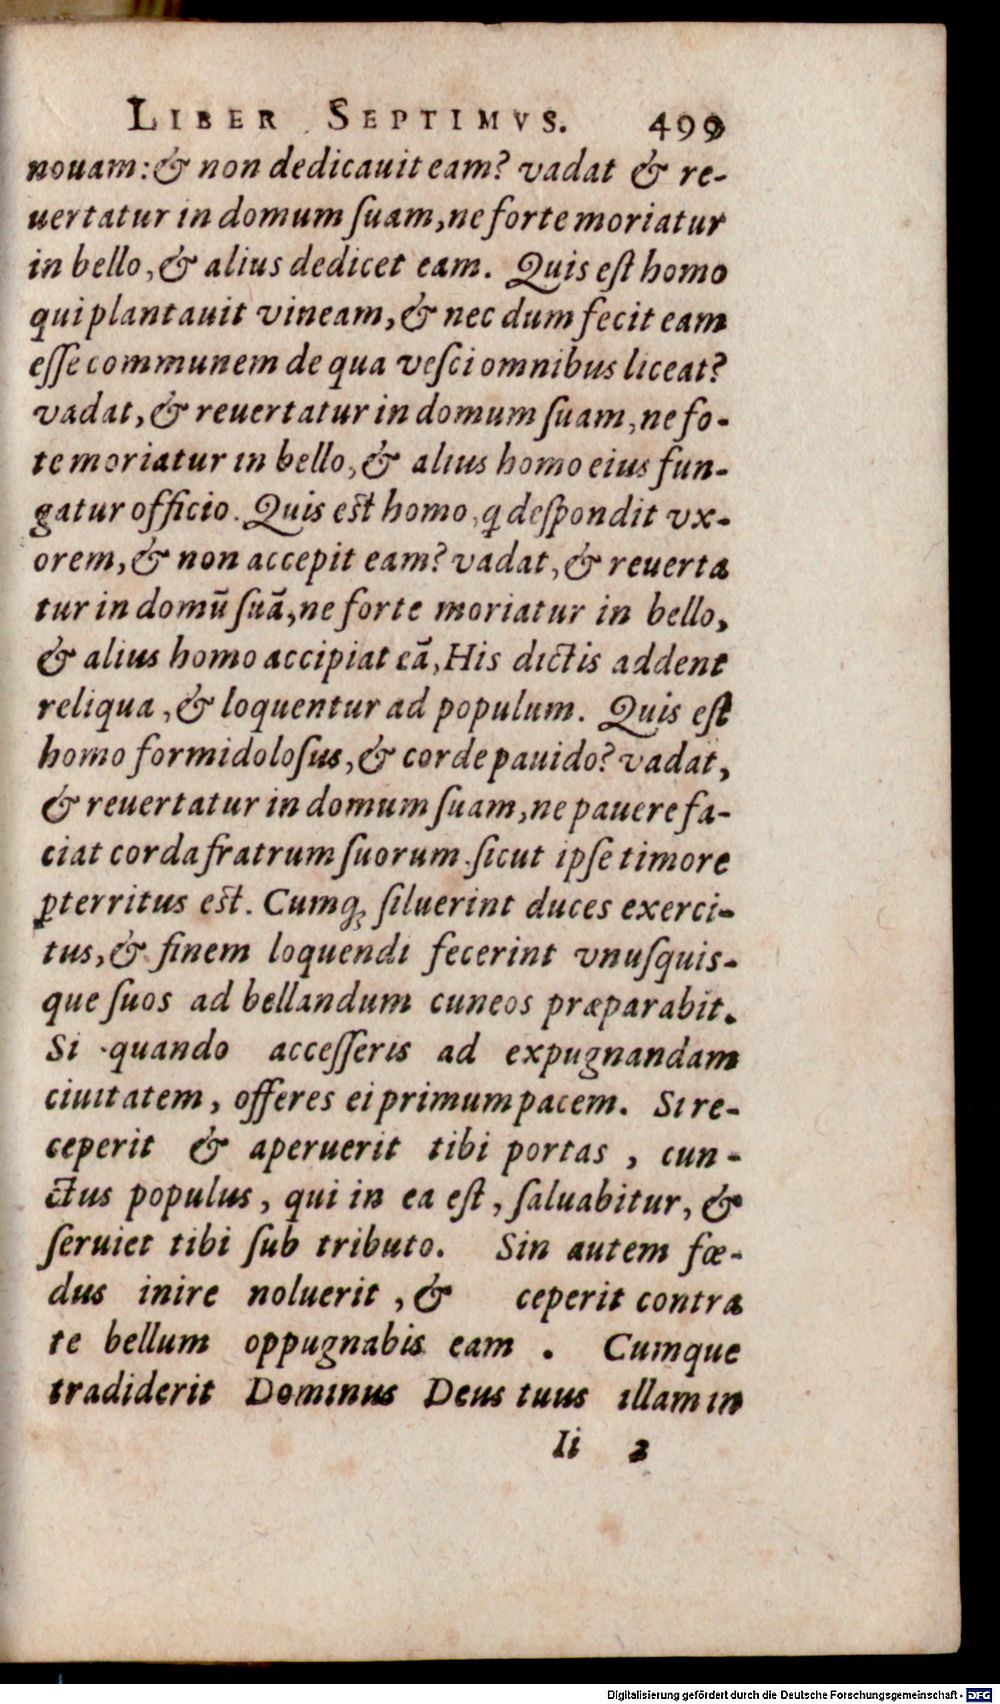 LIBER SEPTIMVS. 499
nouam: & non dedicauit eam? vadat & re-
uertatur in domum ſuam, ne forte moriatur
in bello, & alius dedicet eam. Quis eſt homo
qui plantauit vineam, & nec dum fecit eam
eſſe communem de qua veſci omnibus liceat?
vadat, & reuertatur in domum ſuam, ne fo-
te moriatur in bello, & alius homo eius fun-
gatur officio. Quis eſt homo, q deſpondit vx-
orem, & non accepit eam? vadat, & reuerta
tur in domū ſuā, ne forte moriatur in bello,
& alius homo accipiat eā, His dictis addent
reliqua, & loquentur ad populum. Quis eſt
homo formidoloſus, & corde pauido? vadat,
& reuertatur in domum ſuam, ne pauere fa-
ciat corda fratrum ſuorum ſicut ipſe timore
ꝑterritus eſt. Cumq; ſiluerint duces exerci-
tus, & finem loquendi fecerint vnuſquis-
que ſuos ad bellandum cuneos præparabit.
Si quando acceſſeris ad expugnandam
ciuitatem, offeres ei primum pacem. Si re-
ceperit & aperuerit tibi portas, cun-
ctus populus, qui in ea eſt, ſaluabitur, &
ſeruiet tibi ſub tributo. Sin autem fœ-
dus inire noluerit, & ceperit contra
te bellum oppugnabis eam. Cumque
tradiderit Dominus Deus tuus illam in
Ii 2
Digitalisierung gefördert durch die Deutsche Forschungsgemeinschaft - DFG